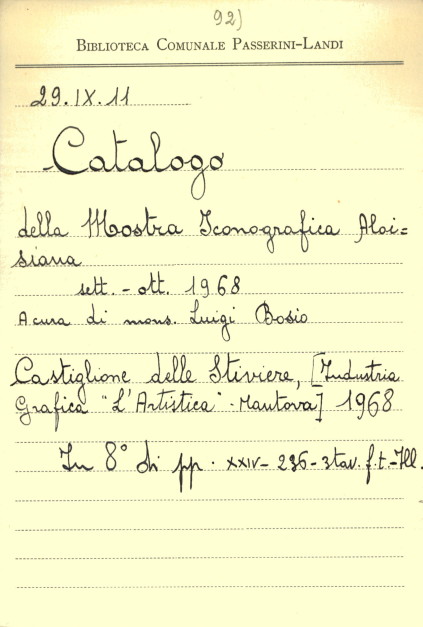 92)
BIBLIOTECA COMUNALE PASSERINI-LANDI
29.IX.11
Catalogo
della Mostra Iconografica Aloi=
siana
sett. - ott. 1968
A cura di mons. Luigi Bosio
Castiglione delle Stiviere, [Industria
Grafica "L'Artistica" - Mantova] 1968
In 8° di pp. XXIV - 236 - 3 tav. f.t. - Ill.